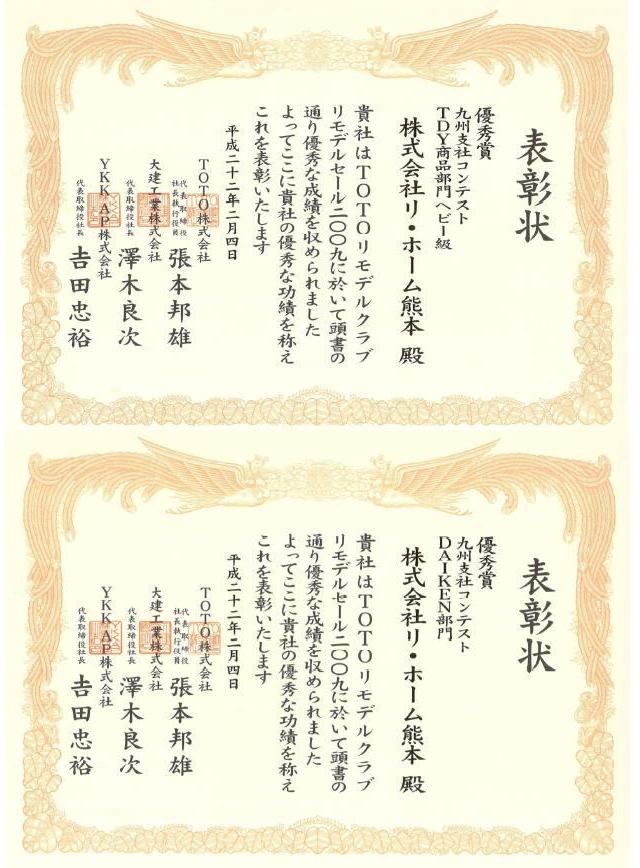 表彰状
優秀賞
九州支社コンテスト
TDY商品部門ヘビー級
株式会社リ・ホーム熊本 殿
貴社はTOTOリモデルクラブ
リモデルセール二〇〇九に於いて頭書の
通り優秀な成績を収められました
よってここに貴社の優秀な功績を称え
これを表彰いたします
平成二十二年二月四日
TOTO株式会社
代表取締役
社長執行役員
張本邦雄
大建工業株式会社
代表取締役社長
澤木良次
YKK AP株式会社
代表取締役社長
吉田忠裕
表彰状
優秀賞
九州支社コンテスト
DAIKEN部門
株式会社リ・ホーム熊本 殿
貴社はTOTOリモデルクラブ
リモデルセール二〇〇九に於いて頭書の
通り優秀な成績を収められました
よってここに貴社の優秀な功績を称え
これを表彰いたします
平成二十二年二月四日
TOTO株式会社
代表取締役
社長執行役員
張本邦雄
大建工業株式会社
代表取締役社長
澤木良次
YKK AP株式会社
代表取締役社長
吉田忠裕